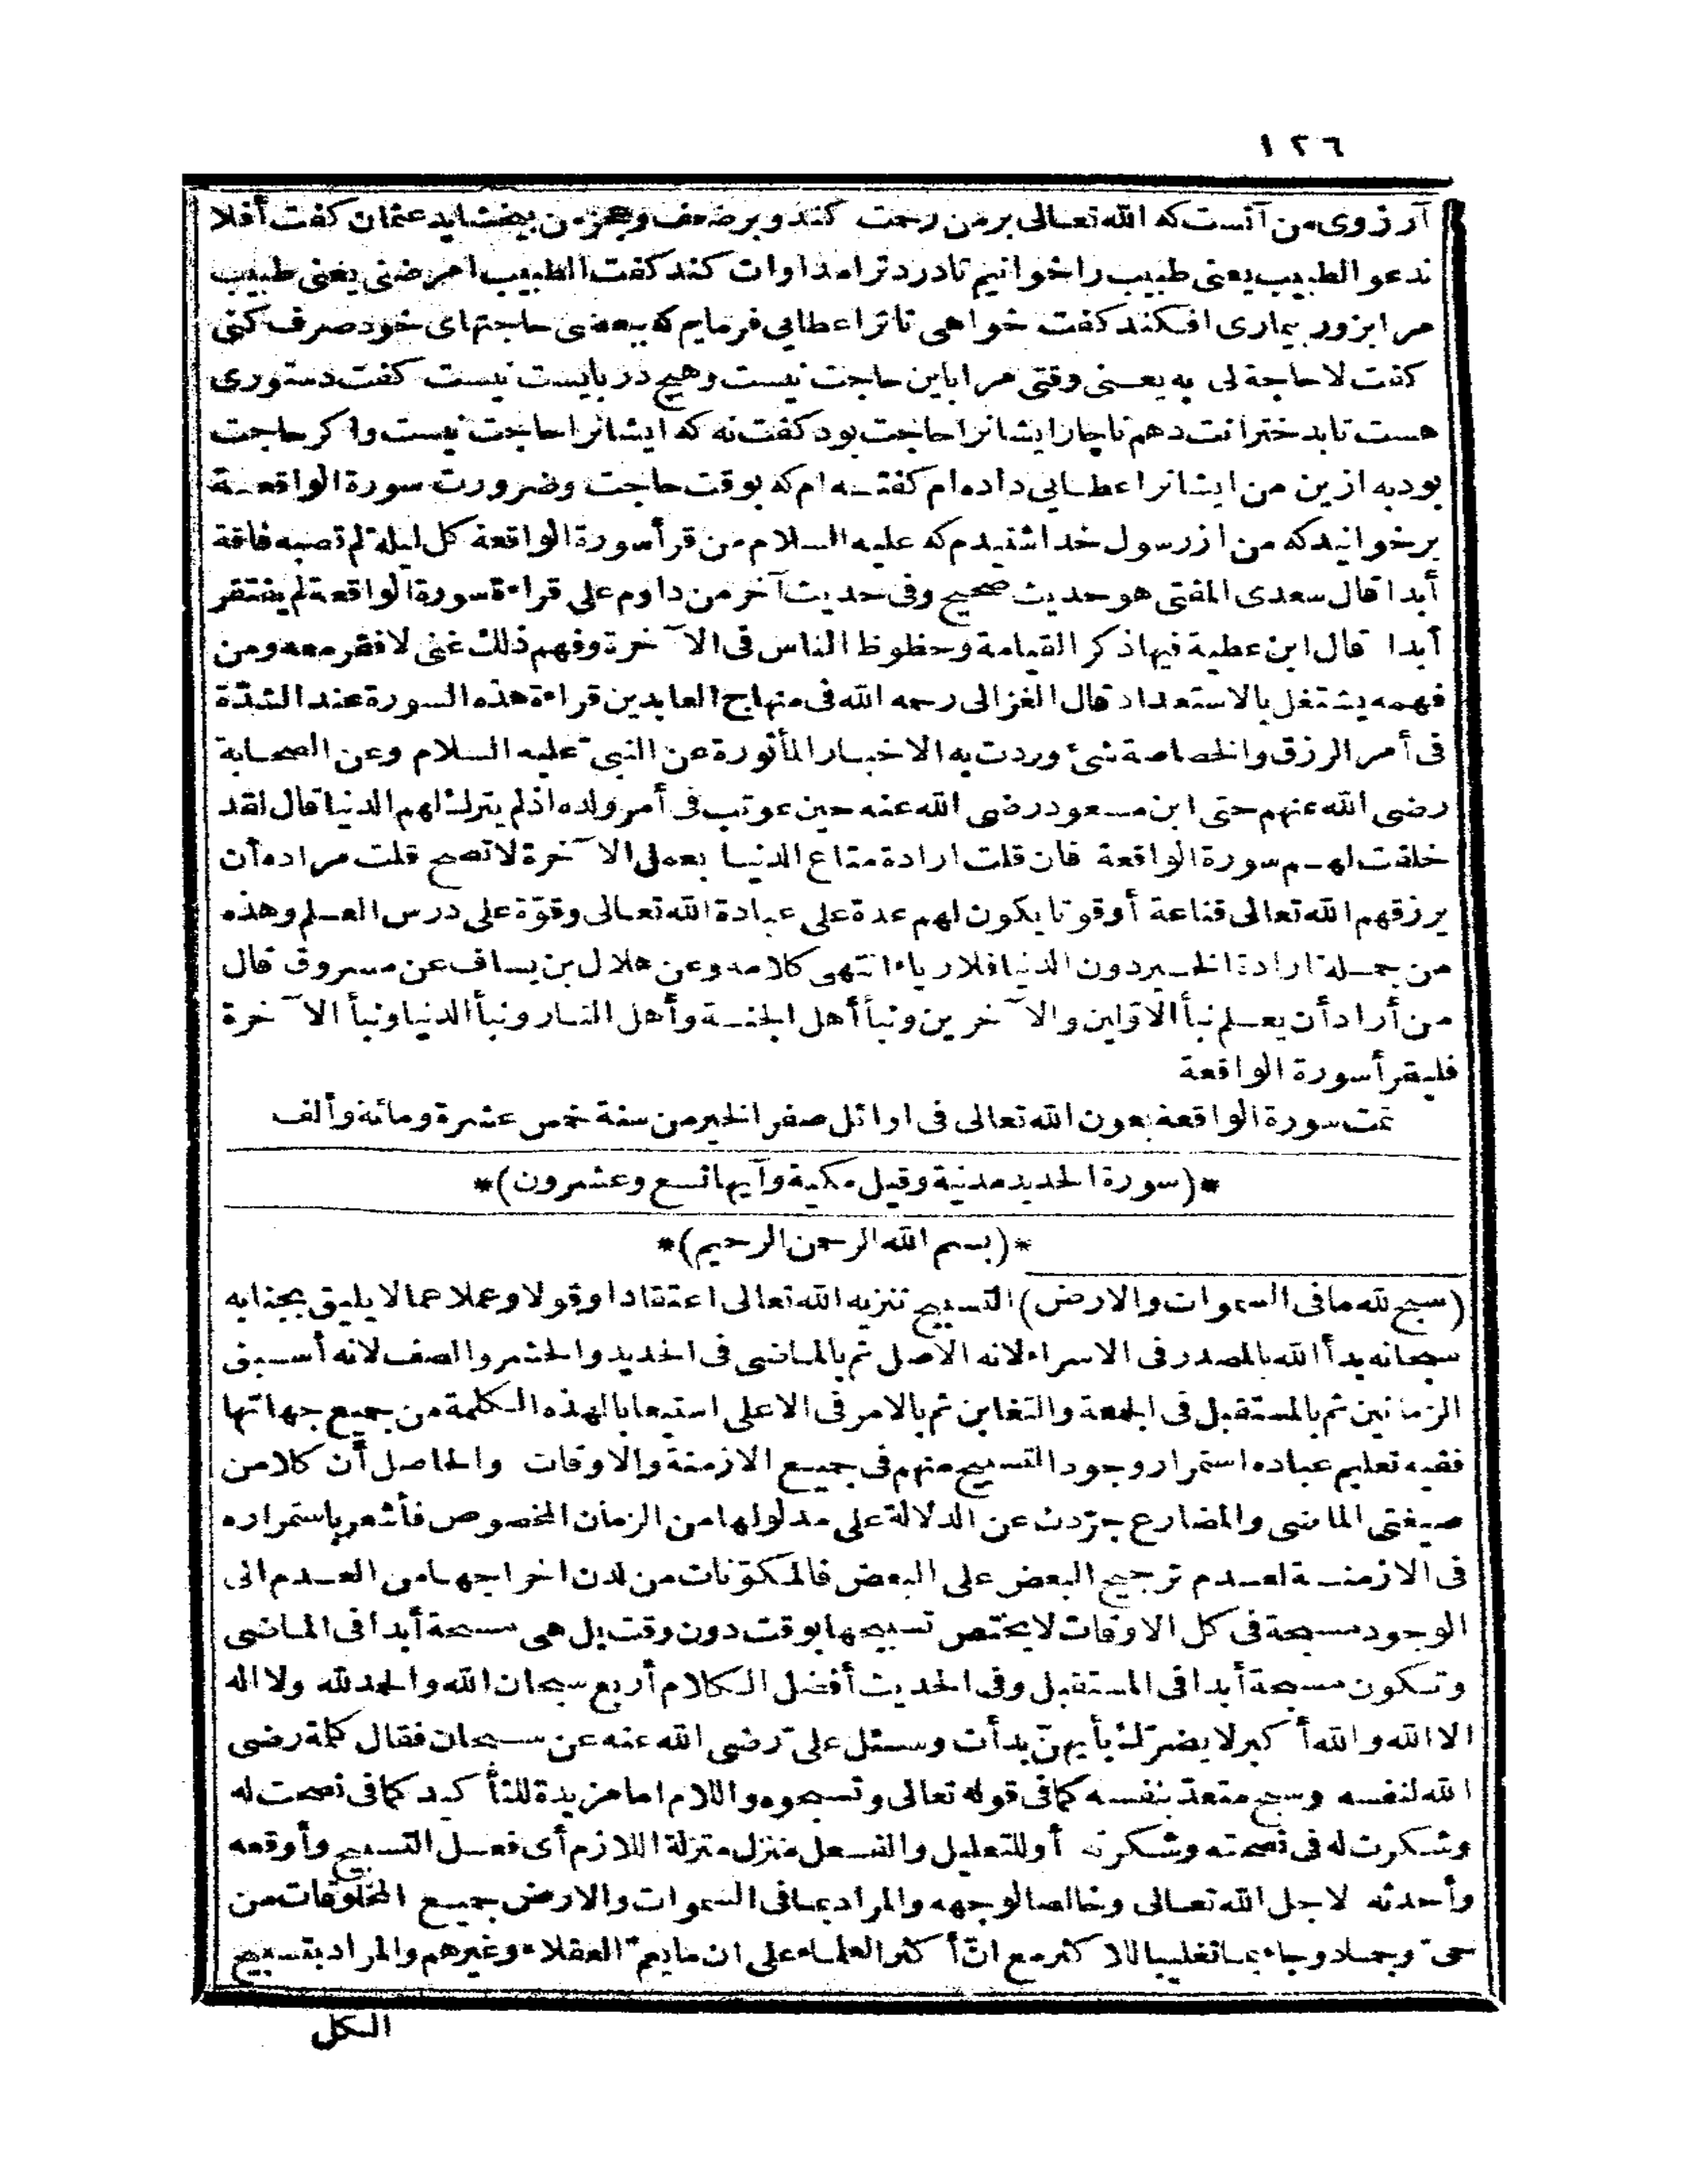 ١٢٦
آرزوى من آنست كه الله تعالى بر من رحمت كند و بر ضعف وعجز من ببخشايد عثمان كفت أفلا
ندعو الطبيب يعنى طبيب را خوانيم تا درد ترا مداوات كند كفت الطبيب امرضنى يعنى طبيب
مرا بزور بيمارى افكند كفت خواهى تا ترا عطايى فرمايم كه ببعضى حاجتهاى خود صرف كنى
كفت لا حاجة لى به يعنى وقتى مرا باين حاجت نيست وهيچ در بايست نيست كفت دستورى
هست تا بدخترانت دهم ناچار ايشانرا حاجت بود كفت نه كه ايشانرا حاجت نيست واكر حاجت
بود به ازين من ايشانرا عطايى داده ام كفته ام كه بوقت حاجت وضرورت سورة الواقعة
برخوانيد كه من از رسول خدا شنيدم كه عليه السلام من قرأ سورة الواقعة كل ليلة لم تصبه فاقة
أبدا قال سعدى المفتى هو حديث صحيح وفى حديث آخر من داوم على قراءة سورة الواقعة لم يفتقر
أبدا قال ابن عطية فيها ذكر القيامة وحظوظ الناس فى الآخرة وفهم ذلك غنى لا فقر معه ومن
فهمه يشتغل بالاستعداد قال الغزالى رحمه الله فى منهاج العابدين قراءة هذه السورة عند الشدّة
فى أمر الرزق والخصاصة شئ وردت به الاخبار المأثورة عن النبىّ عليه السلام وعن الصحابة
رضى الله عنهم حتى ابن مسعود رضى الله عنه حين عوتب فى أمر ولده اذ لم يترك لهم الدنيا قال لقد
خلفت لهم سورة الواقعة فان قلت ارادة متاع الدنيا بعمل الآخرة لا تصح قلت مراده أن
يرزقهم الله تعالى قناعة أو قوتا يكون لهم عدة على عبادة الله تعالى وقوّة على درس العلم وهذه
من جملة ارادة الخير دون الدنيا فلا رياء انتهى كلامه وعن هلال بن يساف عن مسروق قال
من أراد أن يعلم نبأ الاوّلين والآخرين ونبأ أهل الجنة وأهل النار ونبأ الدنيا ونبأ الآخرة
فليقرأ سورة الواقعة
تمت سورة الواقعة بعون الله تعالى فى اوائل صفر الخير من سنة خمس عشرة ومائة وألف
*(سورة الحديد مدنية وقيل مكية وآيها تسع وعشرون)*
*(بسم الله الرحمن الرحيم)*
(سبح لله ما فى السموات والارض) التسبيح تنزيه الله تعالى اعتقادا وقولا وعملا عما لا يليق بجنابه
سبحانه بدأ الله بالمصدر فى الاسراء لانه الاصل ثم بالماضى فى الحديد والحشر والصف لانه أسبق
الزمانين ثم بالمستقبل فى الجمعة والتغابن ثم بالامر فى الاعلى استيعابا لهذه الكلمة من جميع جهاتها
ففيه تعليم عباده استمرار وجود التسبيح منهم فى جميع الازمنة والاوقات والحاصل أن كلا من
صيغتى الماضى والمضارع جرّدت عن الدلالة على مدلولها من الزمان المخصوص فأشعر باستمراره
فى الازمنة لعدم ترجيح البعض على البعض فالمكوّنات من لدن اخراجها من العدم الى
الوجود مسبحة فى كل الاوقات لا يختص تسبيحها بوقت دون وقت بل هى مسبحة أبدا فى الماضى
وتكون مسبحة أبدا فى المستقبل وفى الحديث أفضل الكلام أربع سبحان الله والحمد لله ولا اله
الا الله والله أكبر لا يضرّك بأيهنّ بدأت وسئل علىّ رضى الله عنه عن سبحان فقال كلمة رضى
الله لنفسه وسبح متعدّ بنفسه كما فى قوله تعالى وتسبحوه واللام اما مزيدة للتأكيد كما فى نصحت له
وشكرت له فى نصحته وشكرته أو للتعليل والفعل منزل منزلة اللازم أى فعل التسبيح وأوقعه
وأحدثه لاجل الله تعالى وخالصا لوجهه والمراد بما فى السموات والارض جميع المخلوقات من
حىّ وجماد وجاء بما تغليبا للاكثر مع انّ أكثر العلماء على ان ما يعمّ العقلاء وغيرهم والمراد بتسبيح
الكل